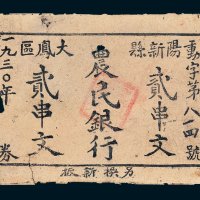 動字第八一四號
陽新縣
大鳳區
農民銀行
貳串文
貳串文
一九三〇年
券